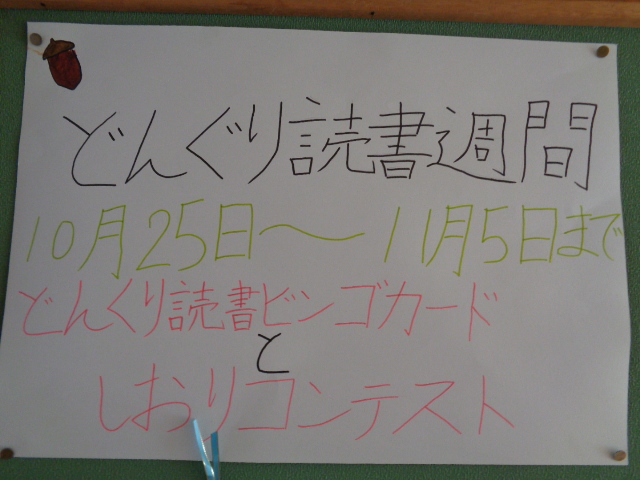 どんぐり読書週間
10月25日～11月5日まで
どんぐり読書ビンゴカード
と
しおりコンテスト